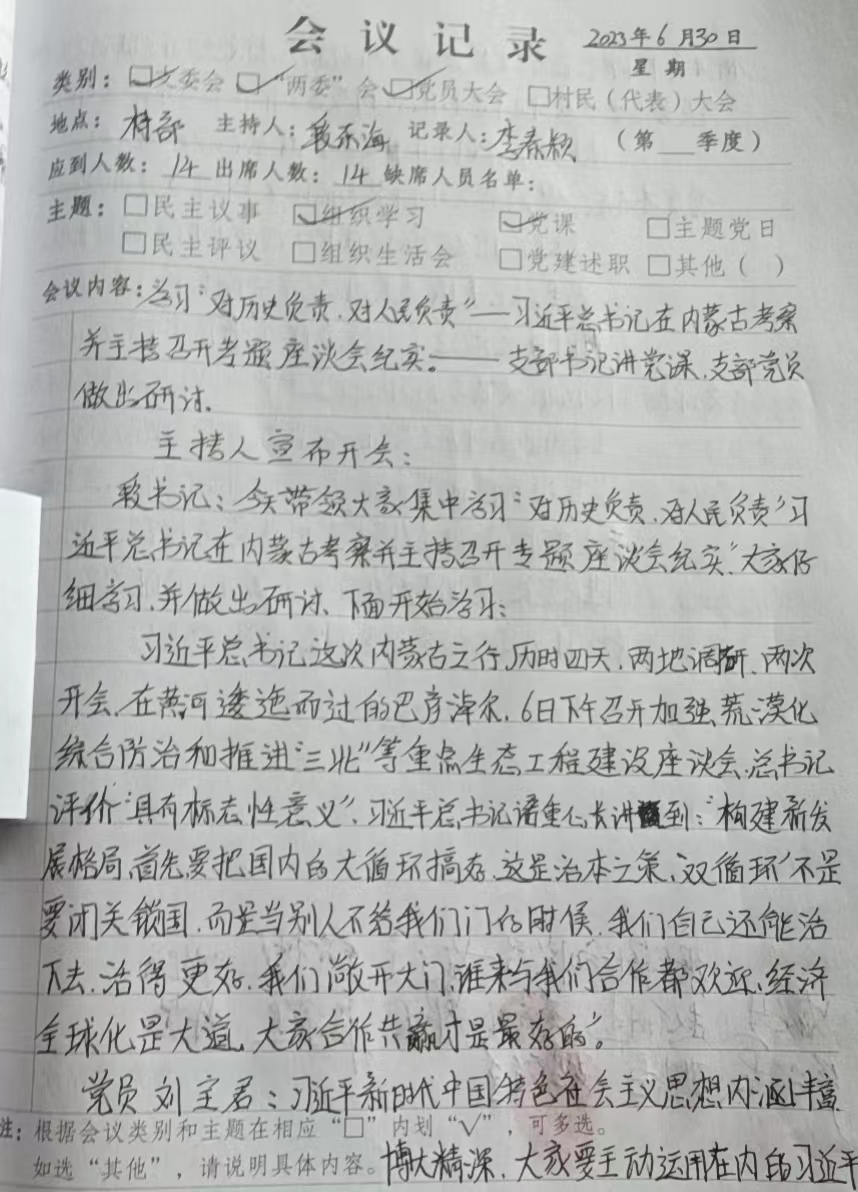 会议记录 2023年6月30日
星期
类别：☑支委会 ☑“两委”会 ☑党员大会 □村民（代表）大会
地点：村部 主持人：段东海 记录人：李春颖 （第 季度）
应到人数：14 出席人数：14 缺席人员名单：
主题：□民主议事 ☑组织学习 ☑党课 □主题党日
□民主评议 □组织生活会 □党建述职 □其他（ ）
会议内容：学习“对历史负责、对人民负责”—习近平总书记在内蒙古考察
并主持召开专题座谈会纪实。——支部书记讲党课，支部党员
做出研讨.
主持人宣布开会：
段书记：今天带领大家集中学习“对历史负责、对人民负责”习
近平总书记在内蒙古考察并主持召开专题座谈会纪实”大家仔
细学习，并做出研讨、下面开始学习：
习近平总书记这次内蒙古之行，历时四天，两地调研、两次
开会，在黄河逶迤而过的巴彦淖尔，6日下午召开加强荒漠化
综合防治和推进“三北”等重点生态工程建设座谈会，总书记
评价“具有标志性意义”，习近平总书记语重心长讲到：“构建新发
展格局，首先要把国内的大循环搞好，这是治本之策，双循环’不是
要闭关锁国，而是当别人不给我们门的时候，我们自己还能活
下去，活得更好，我们敞开大门，谁来与我们合作都欢迎，经济
全球化是大道，大家合作共赢才是最好的”。
党员刘宝君：习近平新时代中国特色社会主义思想内涵丰富
注：根据会议类别和主题在相应“□”内划“√”，可多选。
如选“其他”，请说明具体内容。博大精深，大家要主动运用在内的习近平